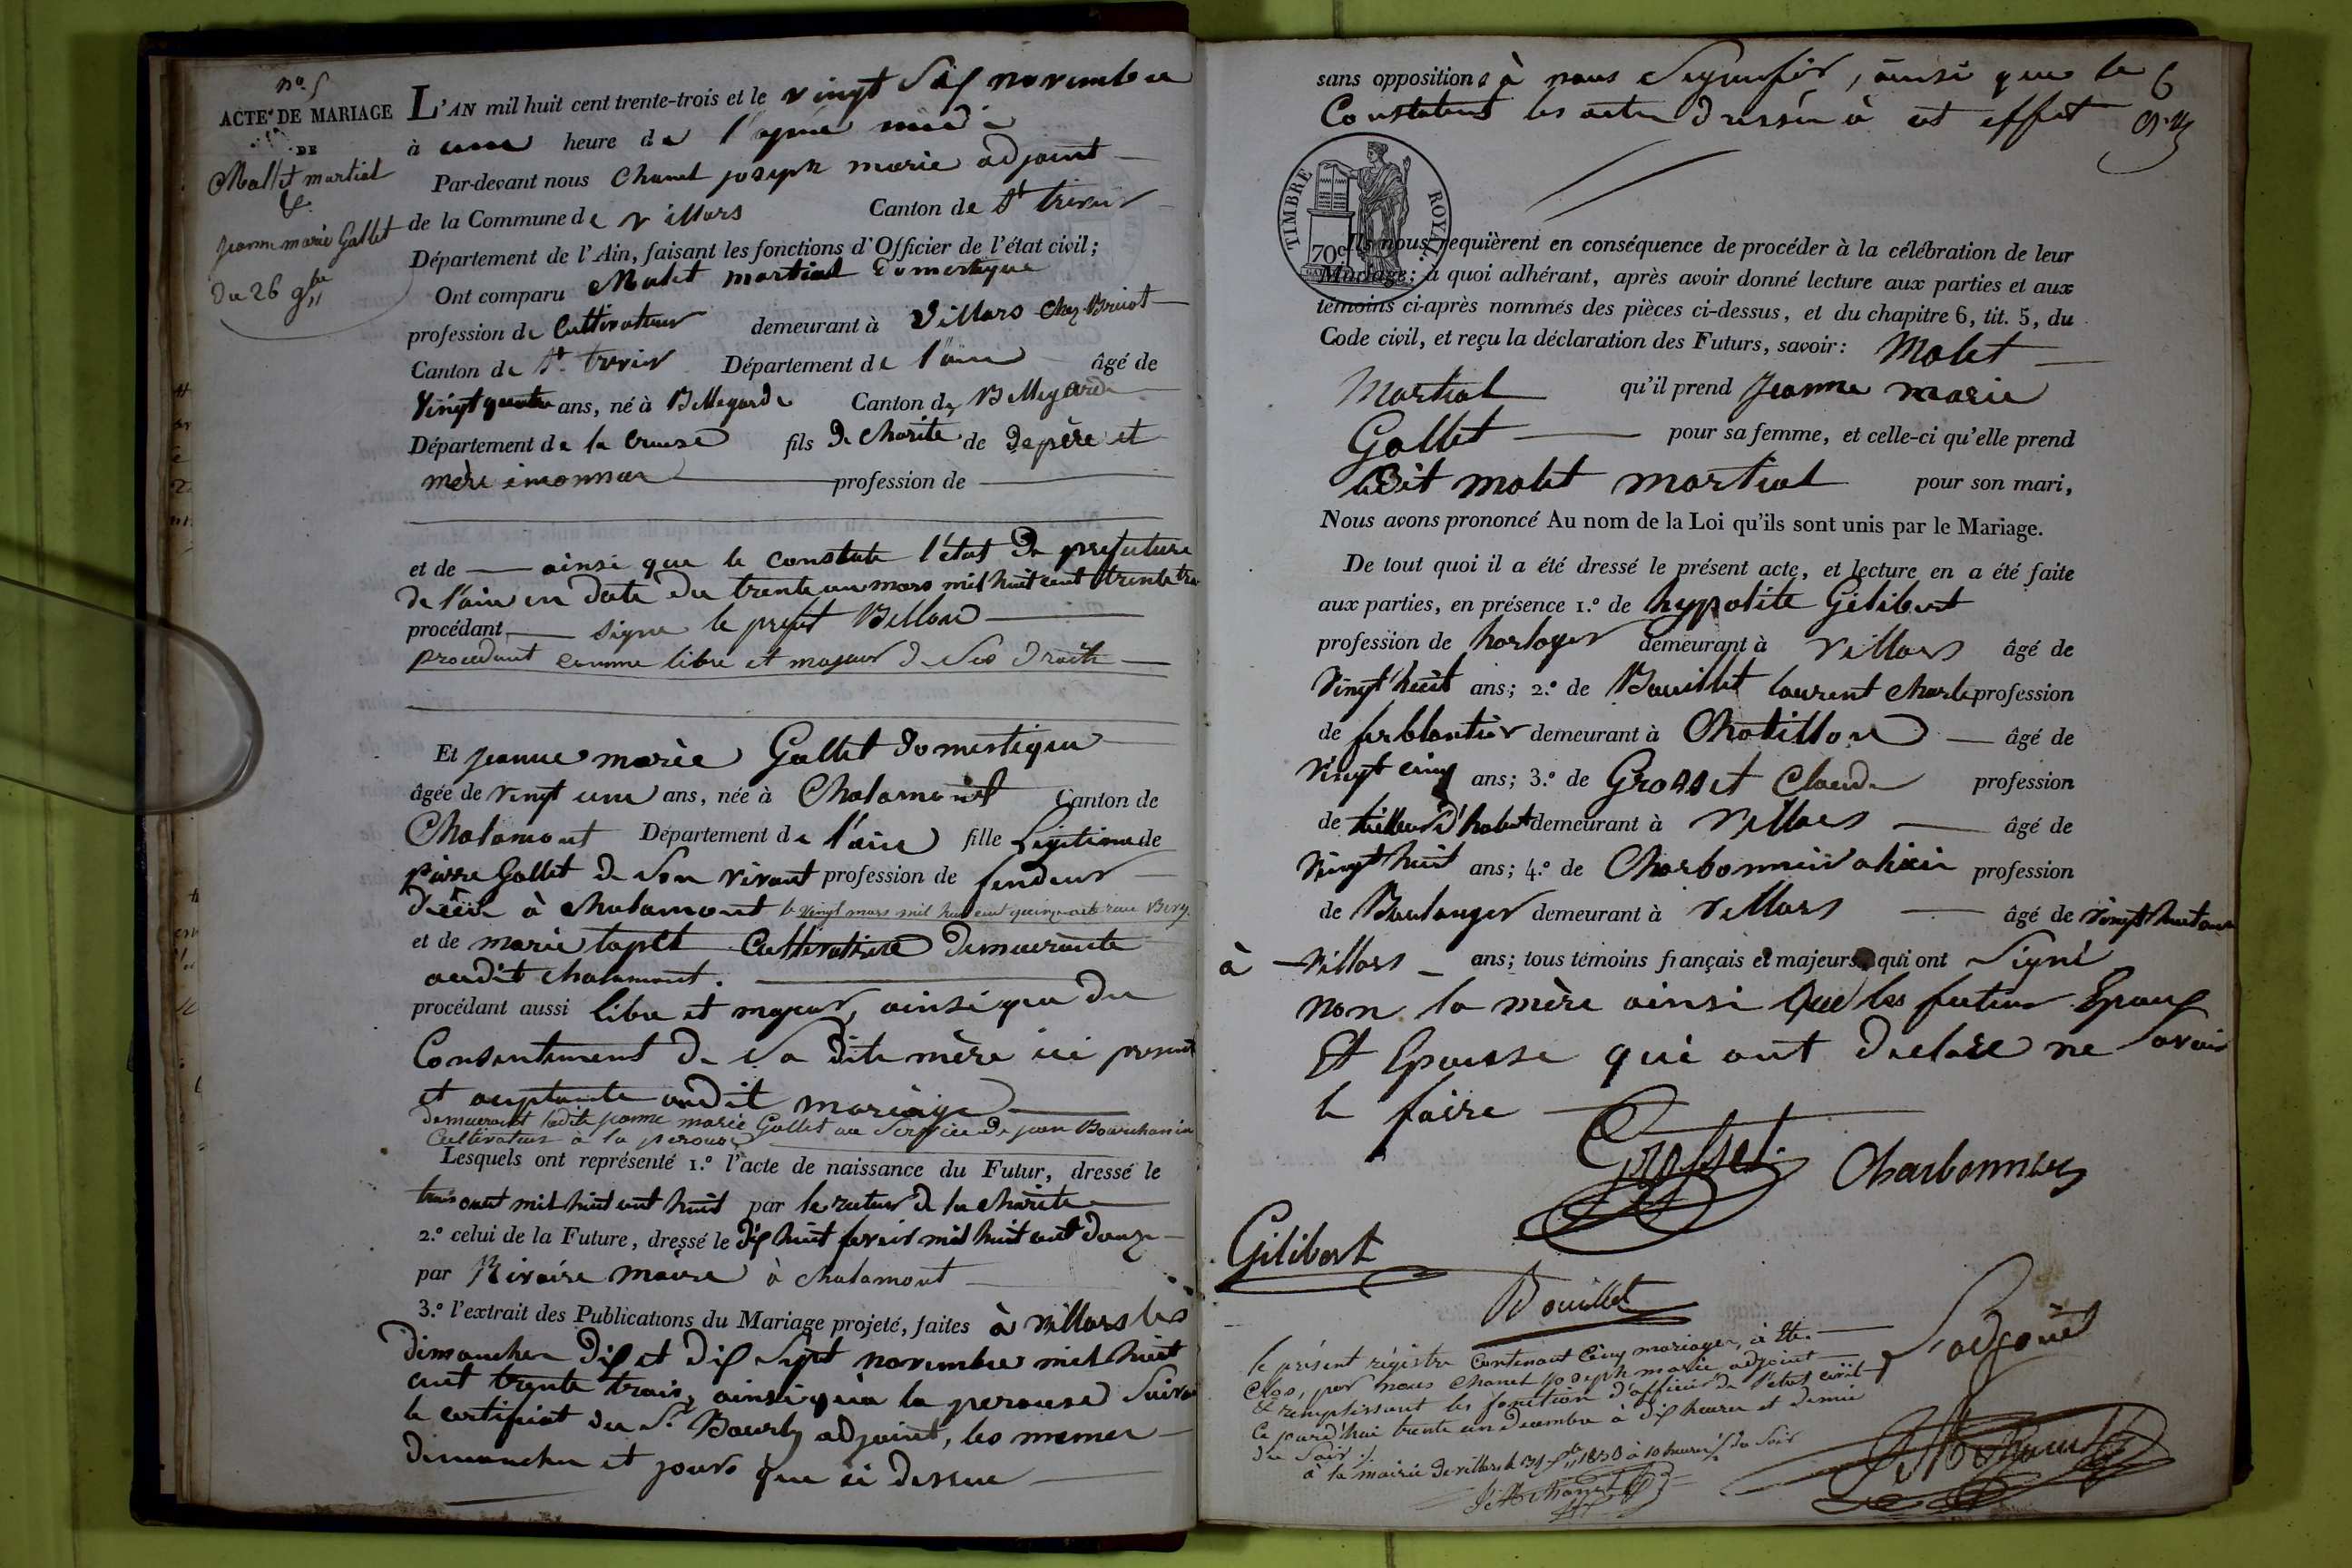 n.° 5
ACTE DE MARIAGE
DE
Mallet martial
&
jeanne marie Gallet
Du 26 9bre
L'AN mil huit cent trente-trois et le vingt six novembre
à une heure de l'après midi
Par-devant nous Chanel joseph marie adjoint
de la Commune de villars Canton de St trivier
Département de l'Ain, faisant les fonctions d'Officier de l'état civil;
Ont comparu Malet martial domestique
profession de Cultivateur demeurant à Villars Chez
Canton de St trivier Département de l'ain âgé de
Vingt quatre ans, né à Bellegarde Canton de Bellegarde
Département de la Creuse fils De charité de De père et
mère inconnus profession de
et de ainsi que le constate l'état De prefecture
de l'ain en date du trente un mars mil huit cent trente
procédant signe le prefet
procedant comme libre et majeur de ses droits
Et jeanne marie Gallet domestique
âgée de vingt une ans, née à Chalamont Canton de
Chalamont Département de l'ain fille Legitime de
pierre Gallet de son vivant profession de fendeur
à chalamont le vingt mars mil huit cent quinze
et de marie tapet Cultivatrice demeurante
audit chalamont.
procédant aussi libre et majeur, ainsi que du
Consentement de sa dite mère ici presente
et acceptante audit mariage
demeurant ladite jeanne marie Gallet au service de jean
Cultivateur à la perouse
Lesquels ont représenté 1.° l'acte de naissance du Futur, dressé le
trois mil huit cent huit par le recteur de la charité
2.° celui de la Future, dressé le dix huit mil huit cent douze
par Rivoire maire à chalamont
3.° l'extrait des Publications du Mariage projeté, faites à villars les
dimanches dix et dix sept novembre mil huit
cent trente trois, ainsi qu'a la perouse suivant
le certificat du Sr adjoint, les memes
dimanches et jours que ci dessus
sans oppositions à nous signifiés, ainsi que le
Constatent les actes dressés à cet effet
6
TIMBRE ROYAL
70c
Ils nous requièrent en conséquence de procéder à la célébration de leur
Mariage: à quoi adhérant, après avoir donné lecture aux parties et aux
témoins ci-après nommés des pièces ci-dessus, et du chapitre 6, tit. 5, du
Code civil, et reçu la déclaration des Futurs, savoir: Malet
Martial qu'il prend Jeanne marie
Gallet pour sa femme, et celle-ci qu'elle prend
ledit malet martial pour son mari,
Nous avons prononcé Au nom de la Loi qu'ils sont unis par le Mariage.
De tout quoi il a été dressé le présent acte, et lecture en a été faite
aux parties, en présence 1.° de hypolite Gilibert
profession de horloger demeurant à villars âgé de
Vingt huit ans; 2.° de Bouillet laurent charle profession
de ferblantier demeurant à Chatillon âgé de
vingt cinq ans; 3.° de Grosset Claude profession
de tailleur d'habit demeurant à villars âgé de
Vingt huit ans; 4.° de Charbonnier profession
de Boulanger demeurant à villars âgé de vingt huit ans
à villars ans; tous témoins français et majeurs qui ont signé
non la mère ainsi que les futurs Epoux
Et Epousse qui ont declaré ne savoir
le faire
Grosset
Charbonnier
Gilibert
Bouillet
L'adjoint
le présent régistre Contenant Cinq mariages, à été
Clos, par nous Chanel joseph marie adjoint
& remplissant les fonction d'officier de l'état civil
Ce jourd'hui trente un decembre à dix heures et demie
du soir
à la mairie de villars le 31 1833 à 10 heures ½ du soir